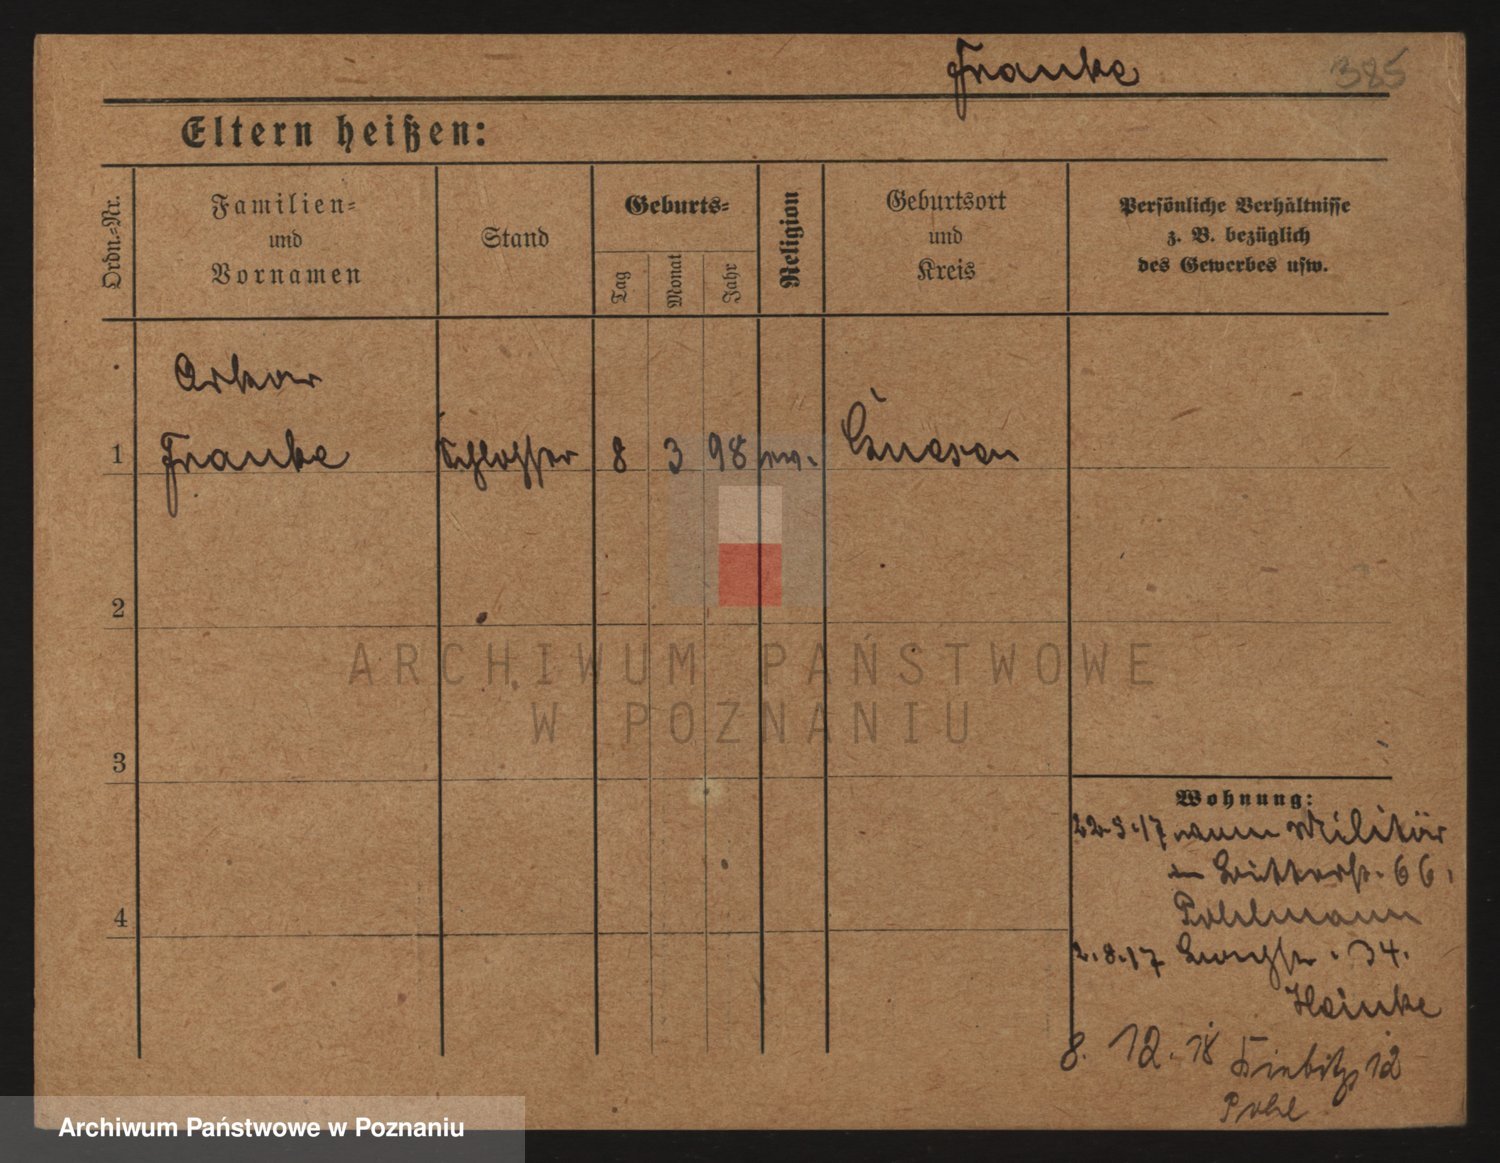 Franke 385
Eltern heißen:
Ordn.-Nr.
Familien-
und
Vornamen
Stand
Geburts-
Tag
Monat
Jahr
Religion
Geburtsort
und
Kreis
Persönliche Verhältnisse
z. B. bezüglich
des Gewerbes usw.
1 Franke Schlosser 8 3 98 ev. Gnesen
2
3
4
Wohnung:
22.3.17 vom Militär
66.
Pohlmann
2.8.17 34.
Heinke
8. 12. 18 12
Pohl
ARCHIWUM PAŃSTWOWE
W POZNANIU
Archiwum Państwowe w Poznaniu